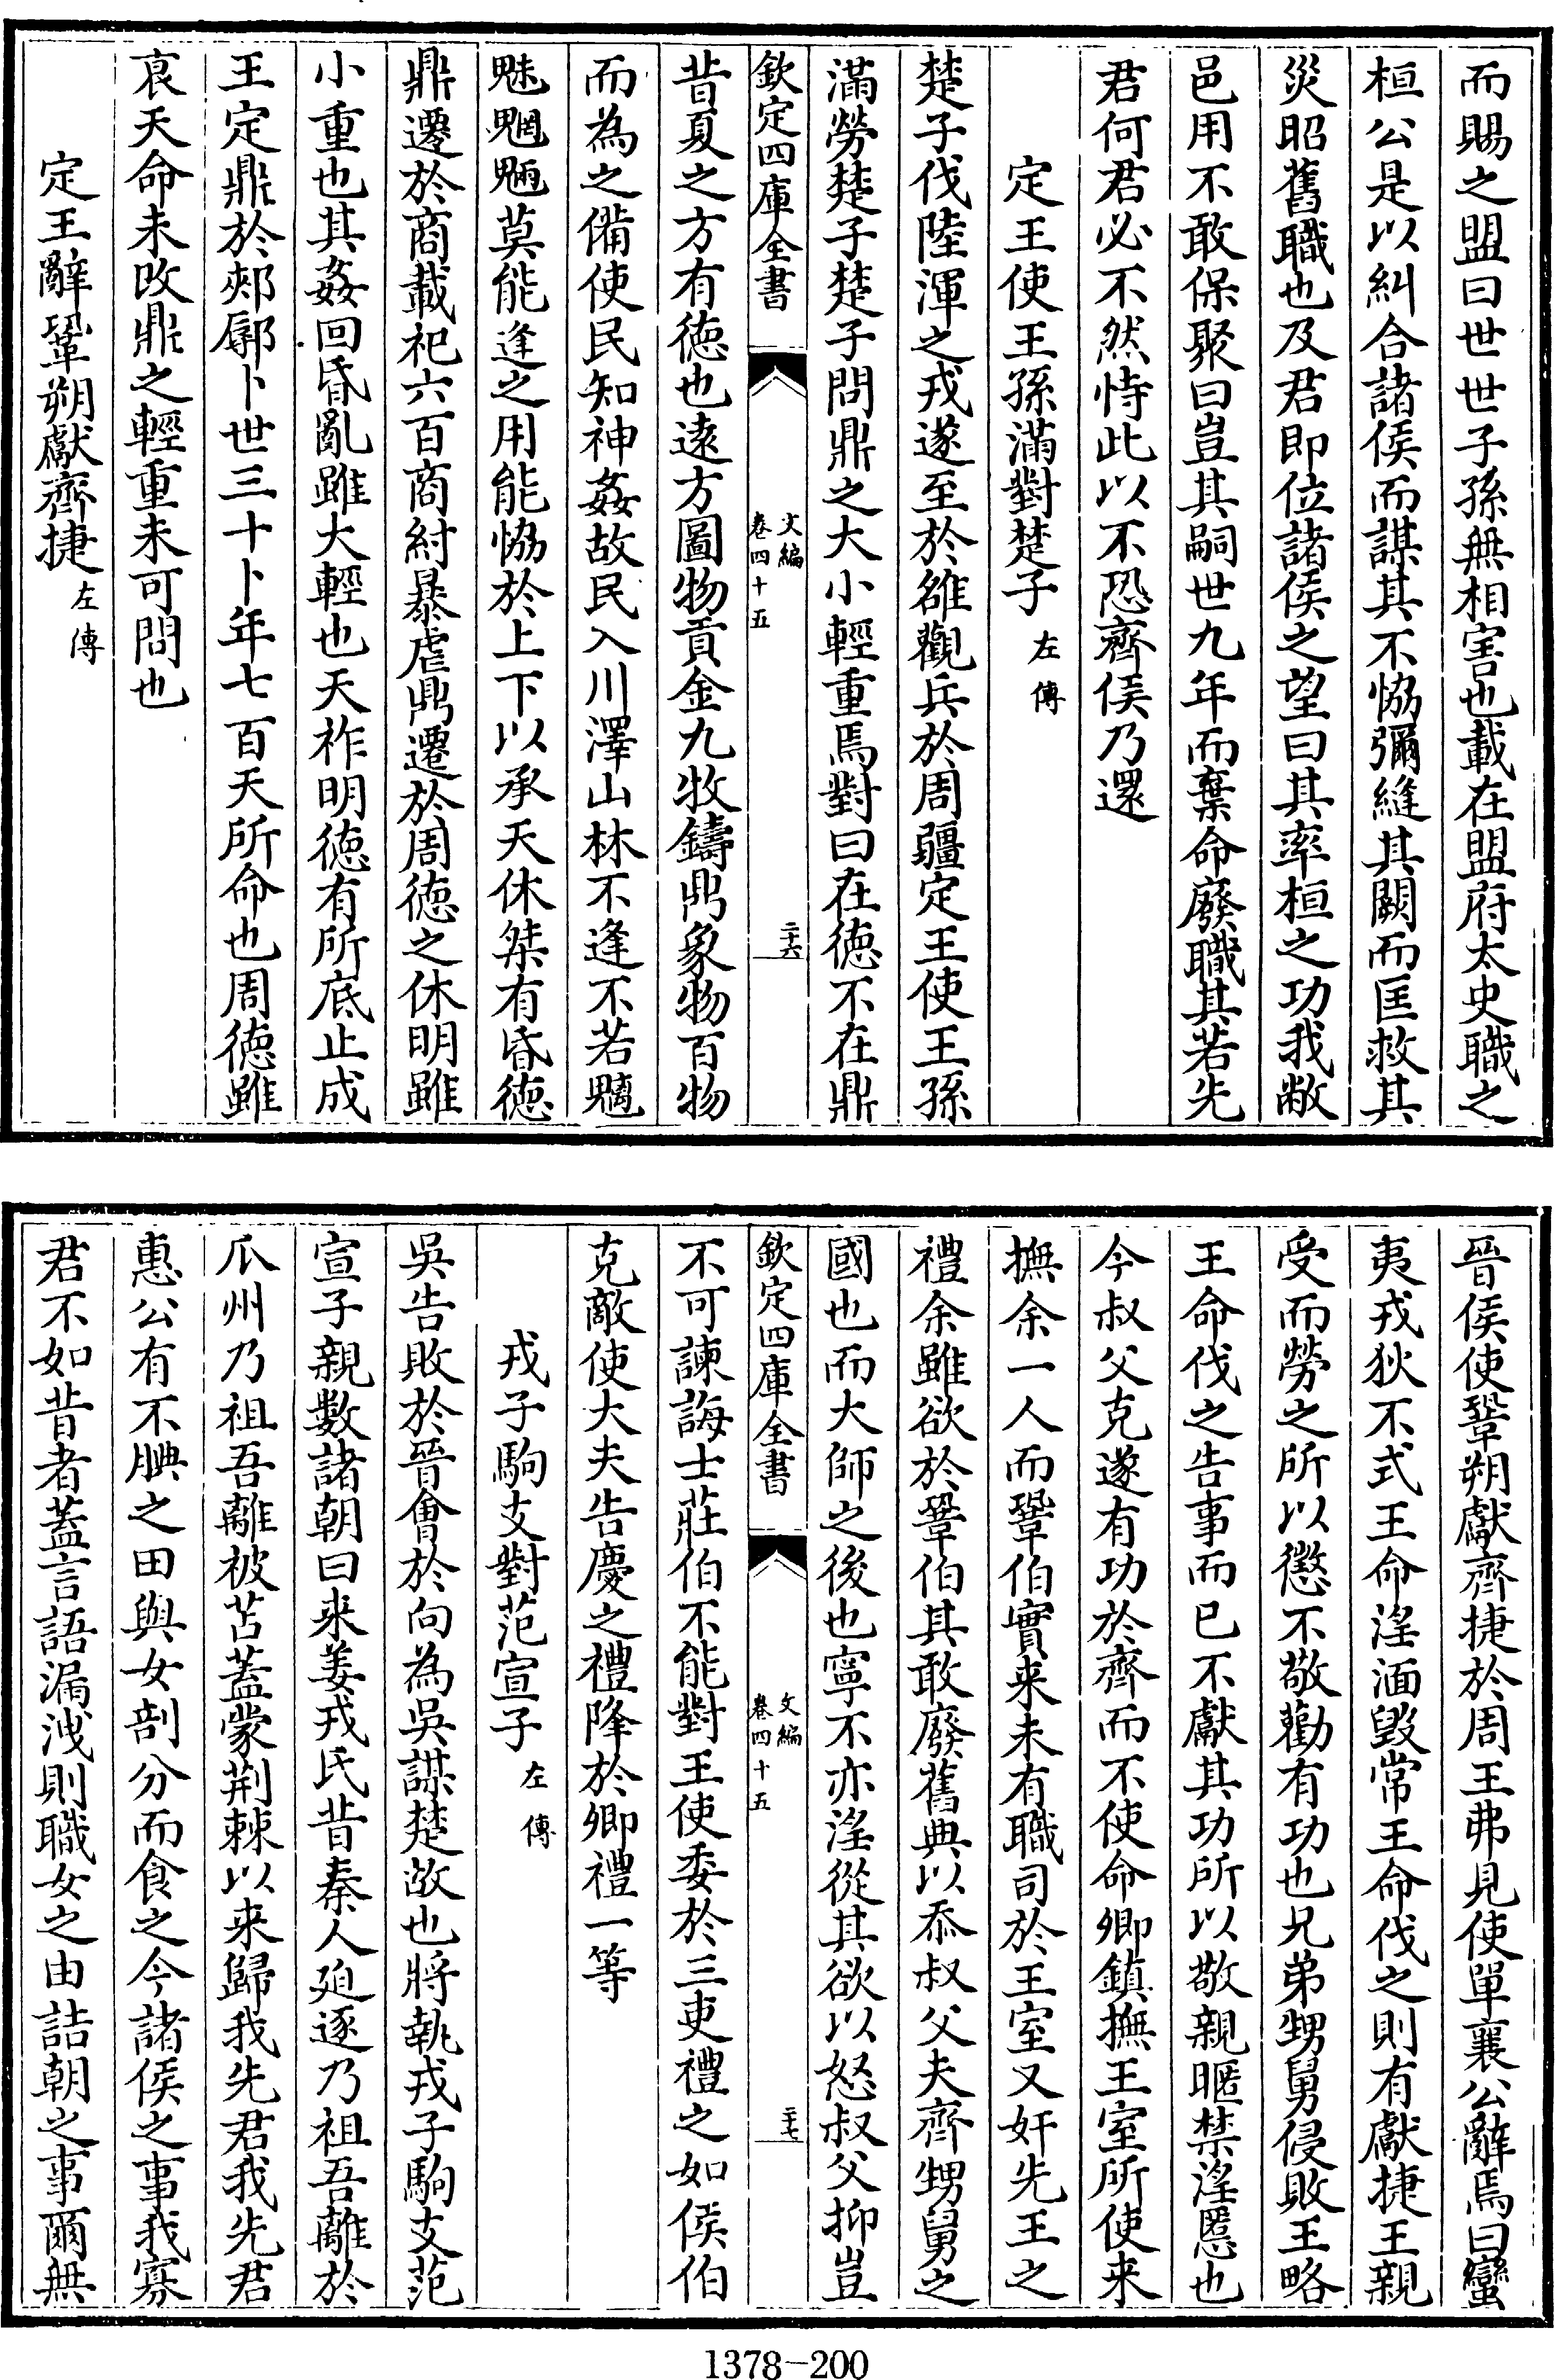 而賜之盟曰世世子孫無相害也載在盟府太史職之
桓公是以糾合諸侯而謀其不恊彌縫其闕而匡救其
災昭舊職也及君即位諸侯之望曰其率桓之功我敝
邑用不敢保聚曰豈其嗣世九年而棄命廢職其若先
君何君必不然恃此以不恐齊侯乃還
定王使王孫滿對楚子左傳
楚子伐陸渾之戎遂至於雒觀兵於周疆定王使王孫
滿勞楚子楚子問鼎之大小輕重焉對曰在徳不在鼎
欽定四庫全書
文編
卷四十五
二十六
昔夏之方有徳也遠方圖物貢金九牧鑄鼎象物百物
而為之備使民知神姦故民入川澤山林不逢不若魑
魅魍魎莫能逢之用能恊於上下以承天休桀有昏徳
鼎遷於商載祀六百商紂暴虐鼎遷於周徳之休明雖
小重也其姦回昏亂雖大輕也天祚明徳有所底止成
王定鼎於郟鄏卜世三十卜年七百天所命也周徳雖
衰天命未改鼎之輕重未可問也
定王辭鞏朔獻齊捷左傳
晉侯使鞏朔獻齊捷於周王弗見使單襄公辭焉曰蠻
夷戎狄不式王命淫湎毀常王命伐之則有獻捷王親
受而勞之所以懲不敬勸有功也兄弟甥舅侵敗王略
王命伐之告事而已不獻其功所以敬親暱禁淫慝也
今叔父克遂有功於齊而不使命卿鎮撫王室所使来
撫余一人而鞏伯實来未有職司於王室又奸先王之
禮余雖欲於鞏伯其敢廢舊典以忝叔父夫齊甥舅之
國也而大師之後也寧不亦淫從其欲以怒叔父抑豈
欽定四庫全書
文編
卷四十五
二十七
不可諫誨士莊伯不能對王使委於三吏禮之如侯伯
克敵使大夫告慶之禮降於卿禮一等
戎子駒支對范宣子左傳
吳告敗於晉會於向為吳謀楚故也將執戎子駒支范
宣子親數諸朝曰来姜戎氏昔秦人廹逐乃祖吾離於
瓜州乃祖吾離被苫蓋蒙荆棘以来歸我先君我先君
惠公有不腆之田與女剖分而食之今諸侯之事我寡
君不如昔者蓋言語漏洩則職女之由詰朝之事爾無
1378-200